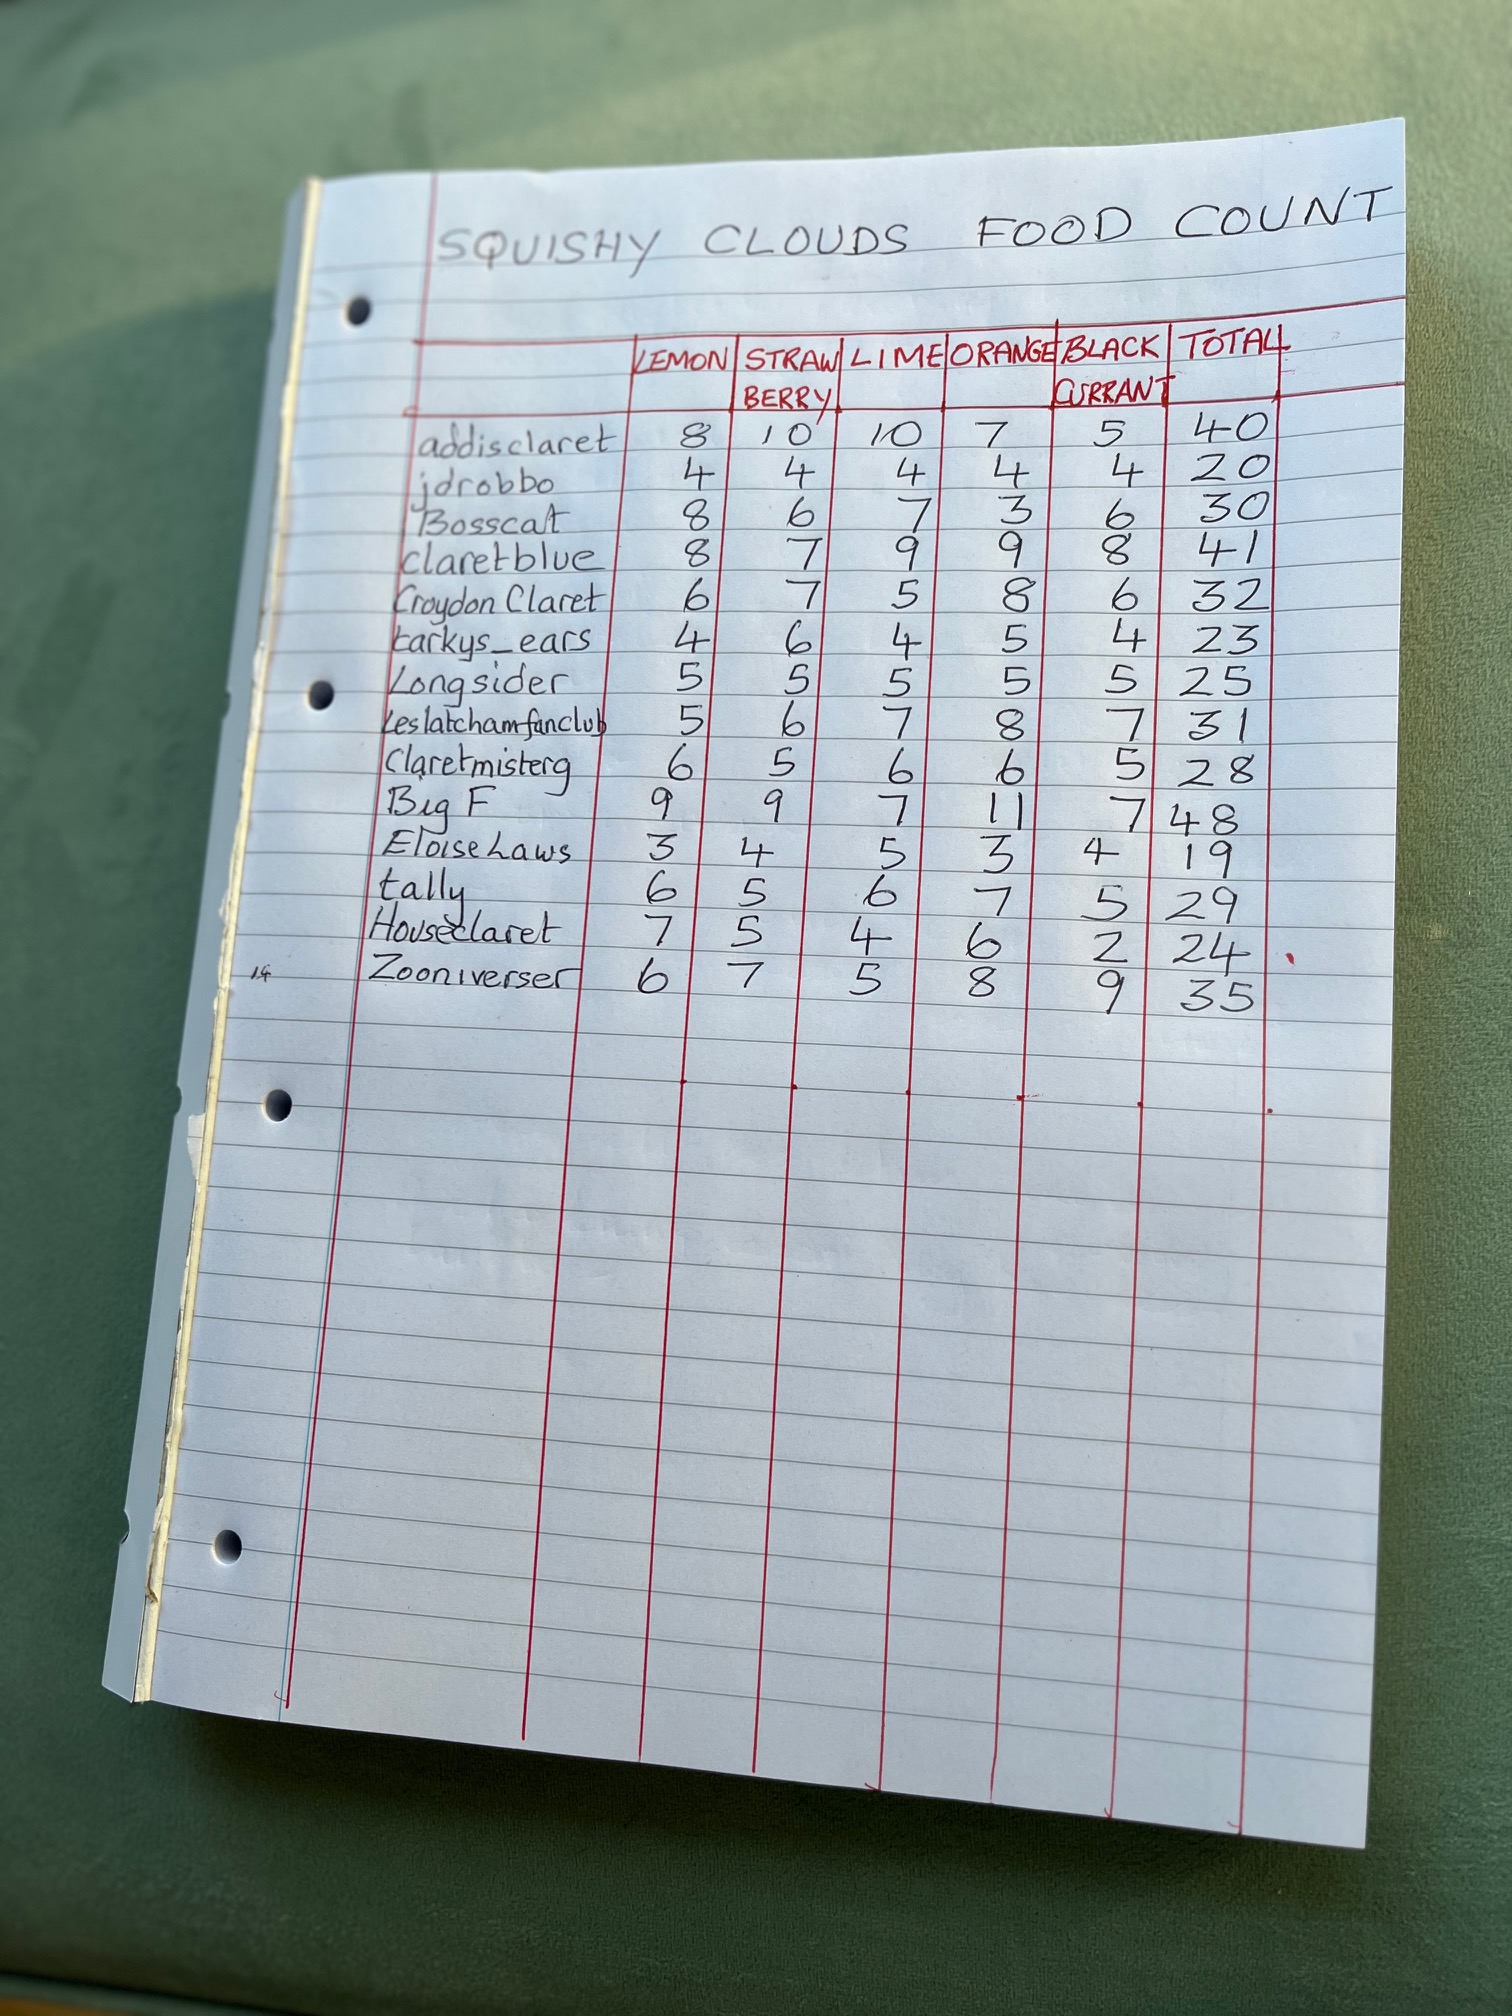 SQUISHY CLOUDS FOOD COUNT
LEMON STRAW LIME ORANGE BLACK TOTAL
BERRY CURRANT
addisclaret 8 10 10 7 5 40
jdrobbo 4 4 4 4 4 20
Bosscat 8 6 7 3 6 30
claretblue 8 7 9 9 8 41
Croydon Claret 6 7 5 8 6 32
tarkys_ears 4 6 4 5 4 23
Longsider 5 5 5 5 5 25
Leslatchamfanclub 5 6 7 8 7 31
Claretmisterg 6 5 6 6 5 28
Big F 9 9 7 11 7 48
Eloise Laws 3 4 5 3 4 19
tally 6 5 6 7 5 29
Houseclaret 7 5 4 6 2 24
14 Zooniverser 6 7 5 8 9 35